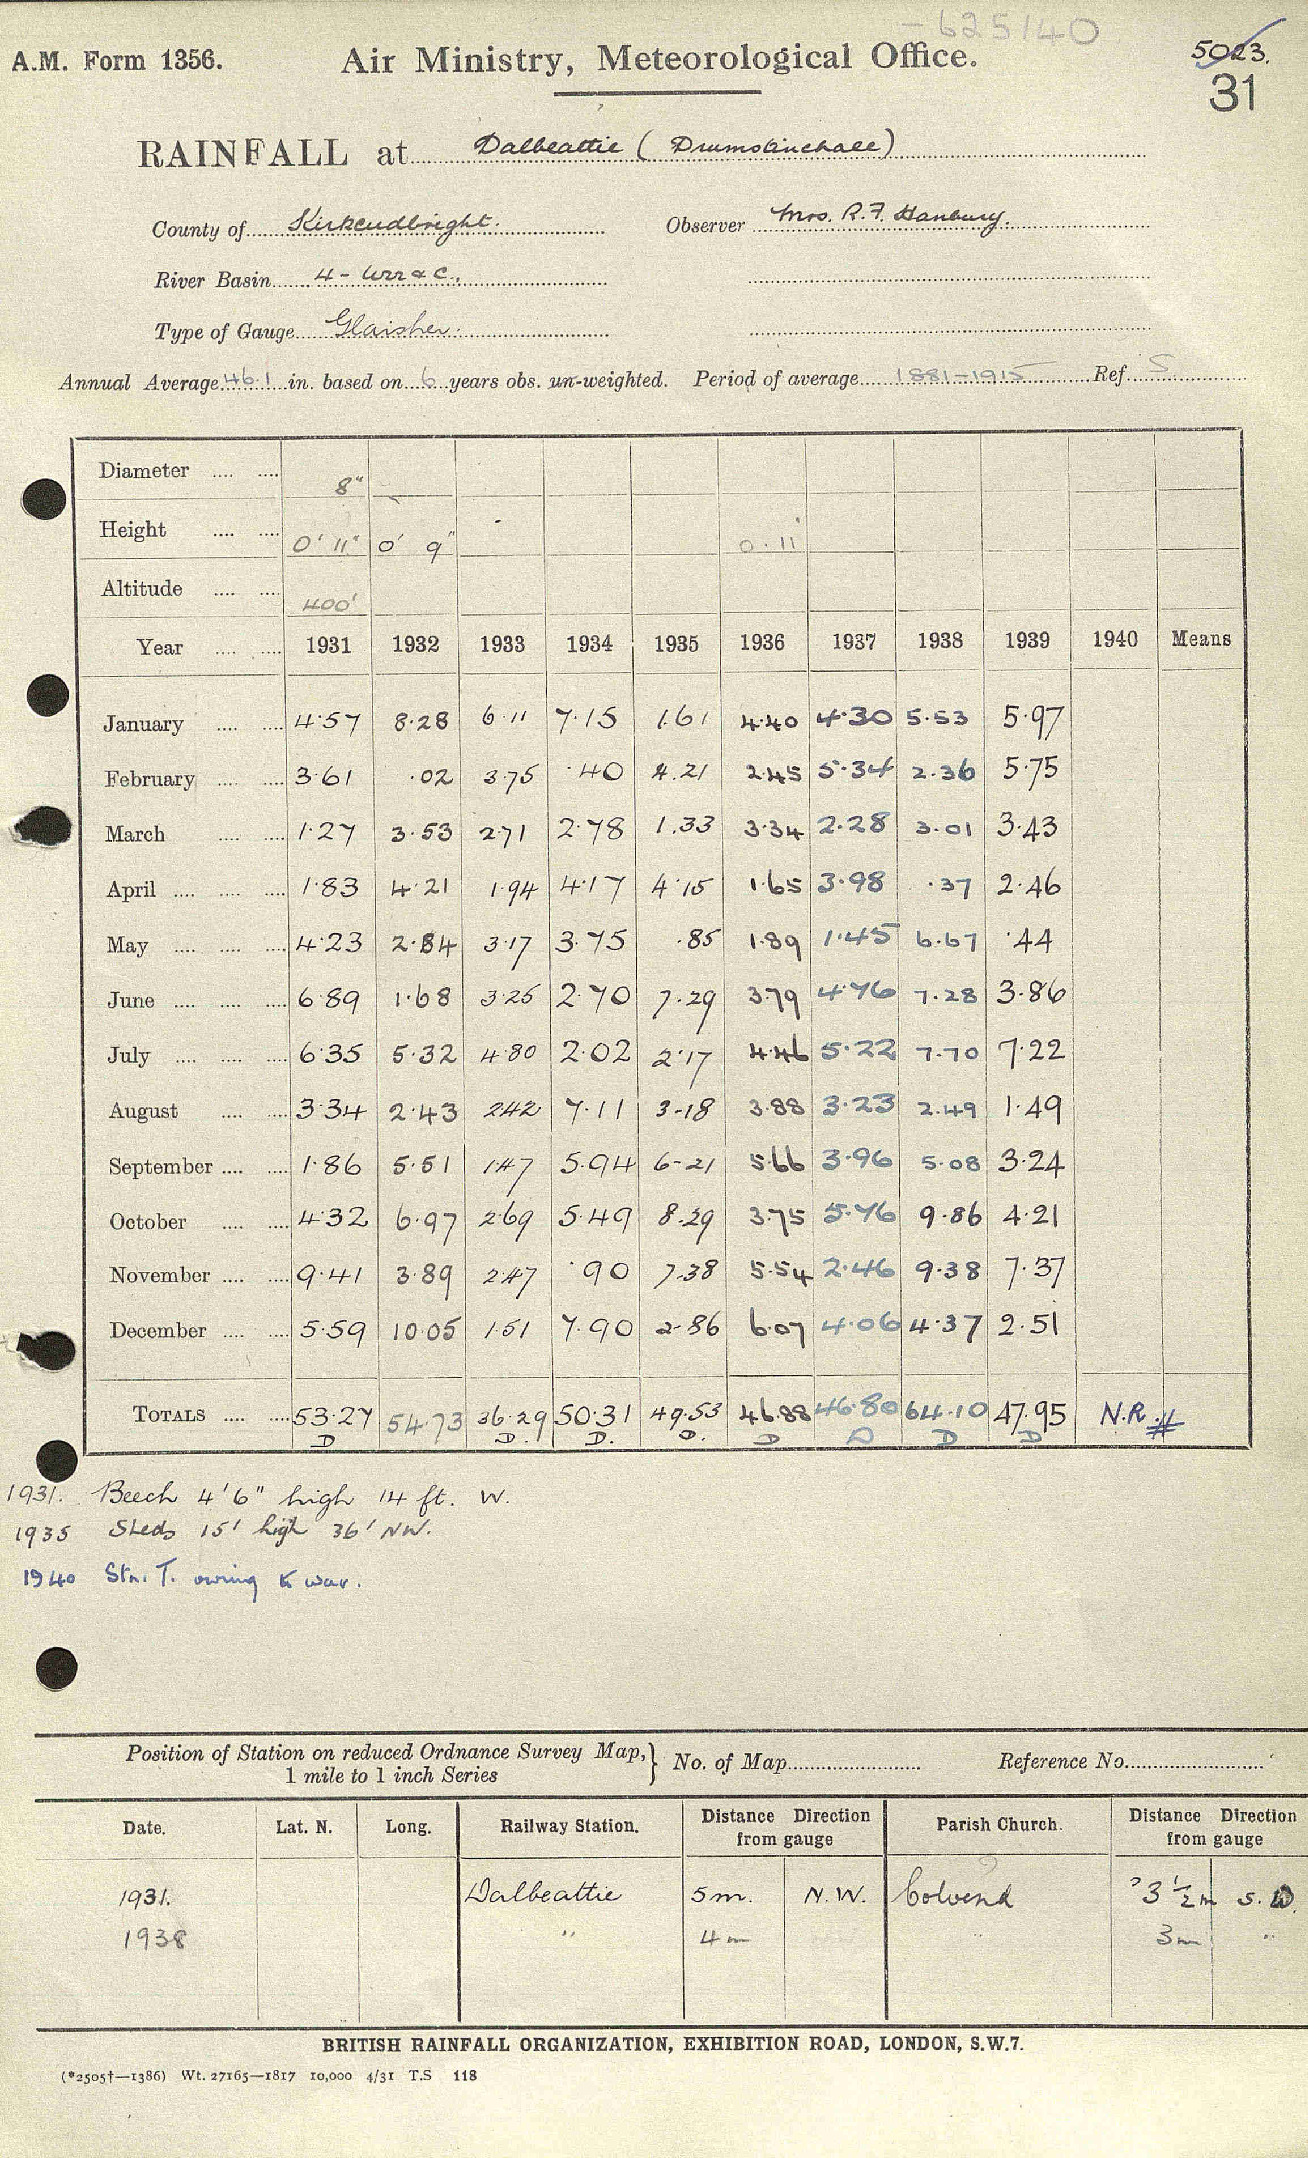 -625140
A.M. Form 1356. Air Ministry, Meteorological Office. 5023.
31
RAINFALL at Dalbeattie (Drumstinchall)
County of Kirkcudbright. Observer Mrs. R.F. Hanbury.
River Basin 4 - Urr &c.
Type of Gauge Glaisher.
Annual Average 46.1 in. based on 6 years obs. un-weighted. Period of average 1881-1915 Ref. S
Diameter .... .... 8"
Height .... .... 0' 11" 0' 9" 0.11
Altitude .... .... 400'
Year .... .... 1931 1932 1933 1934 1935 1936 1937 1938 1939 1940 Means
January .... .... 4.57 8.28 6.11 7.15 1.61 4.40 4.30 5.53 5.97
February .... .... 3.61 .02 3.75 .40 4.21 2.45 5.34 2.36 5.75
March .... .... 1.27 3.53 2.71 2.78 1.33 3.34 2.28 3.01 3.43
April .... .... .... 1.83 4.21 1.94 4.17 4.15 1.65 3.98 .37 2.46
May .... .... .... 4.23 2.84 3.17 3.75 .85 1.89 1.45 6.67 .44
June .... .... .... 6.89 1.68 3.25 2.70 7.29 3.79 4.76 7.28 3.86
July .... .... .... 6.35 5.32 4.80 2.02 2.17 4.46 5.22 7.70 7.22
August .... .... 3.34 2.43 2.42 7.11 3-18 3.88 3.23 2.49 1.49
September .... .... 1.86 5.51 1.47 5.94 6-21 5.66 3.96 5.08 3.24
October .... .... 4.32 6.97 2.69 5.49 8.29 3.75 5.76 9.86 4.21
November .... .... 9.41 3.89 2.47 .90 7.38 5.54 2.46 9.38 7.37
December .... .... 5.59 10.05 1.51 7.90 2-86 6.07 4.06 4.37 2.51
TOTALS .... .... 53.27 54.73 36.29 50.31 49.53 46.88 46.80 64.10 47.95 N.R.#
D D. D. D. D D D D
1931. Beech 4'6" high 14 ft. W.
1935 Sheds 15' high 36' NW.
1940 Stn. T. owing to war.
Position of Station on reduced Ordnance Survey Map,} No. of Map Reference No.
1 mile to 1 inch Series
Date. Lat. N. Long. Railway Station. Distance Direction from gauge Parish Church. Distance Direction from gauge
1931. Dalbeattie 5 m. N.W. Colvend 3 1/2 m S.W.
1938 " 4 m " 3 m "
BRITISH RAINFALL ORGANIZATION, EXHIBITION ROAD, LONDON, S.W.7.
(*2505†—1386) Wt. 27165—1817 10,000 4/31 T.S 118